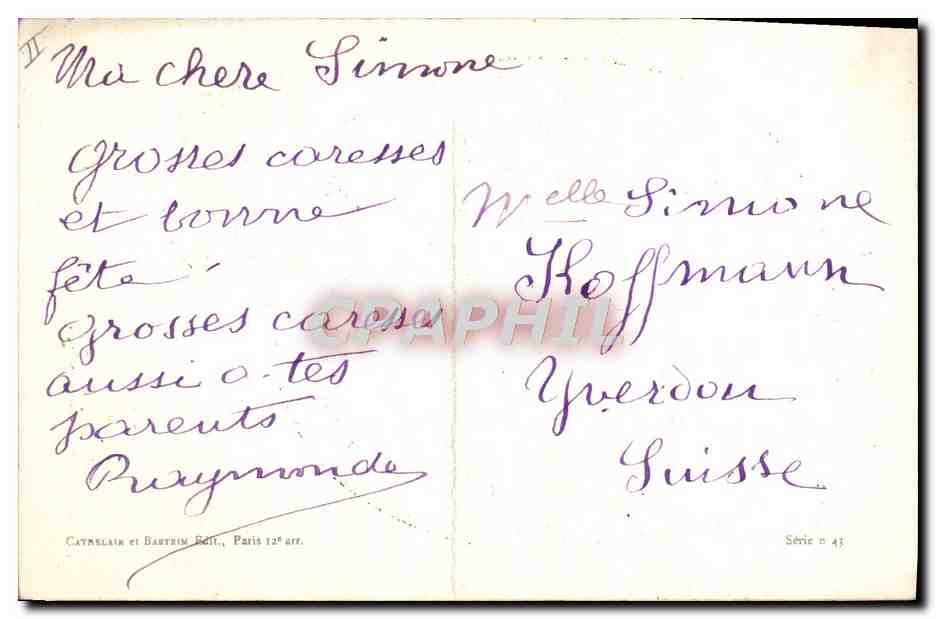 II
Ma chere Simone
grosses caresses
et bonne
fête
grosses caresses
aussi a tes
parents
Raymonde
Melle Simone
Koffmann
Yverdon
Suisse
CPAPHIL
CATHELAIN et BARTHIM Edit., Paris 12e arr.
Série n 43